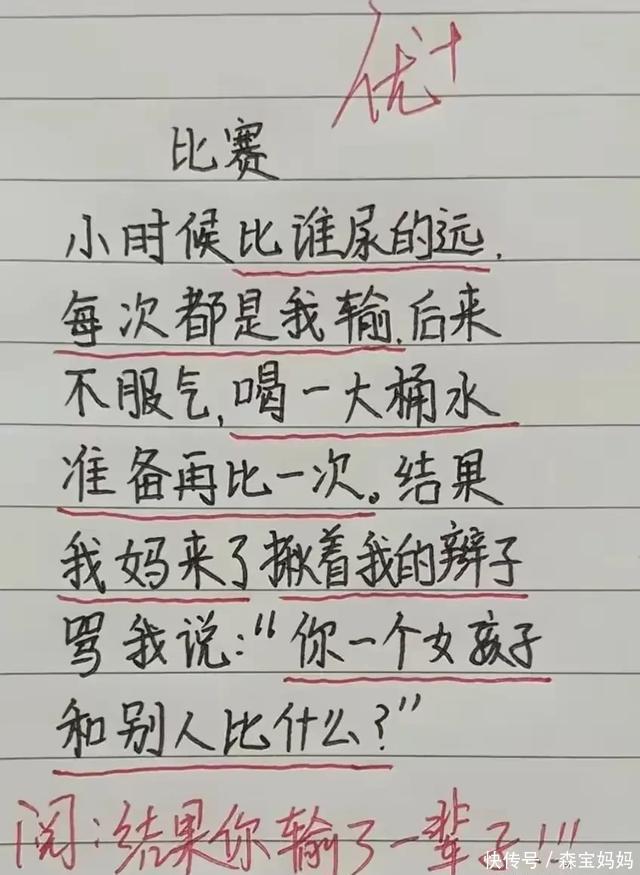 优+
比赛
小时候比谁尿的远,
每次都是我输,后来
不服气,喝一大桶水
准备再比一次。结果
我妈来了揪着我的辫子
骂我说:“你一个女孩子
和别人比什么?”
阅:结果你输了一辈子!!!
快传号/森宝妈妈